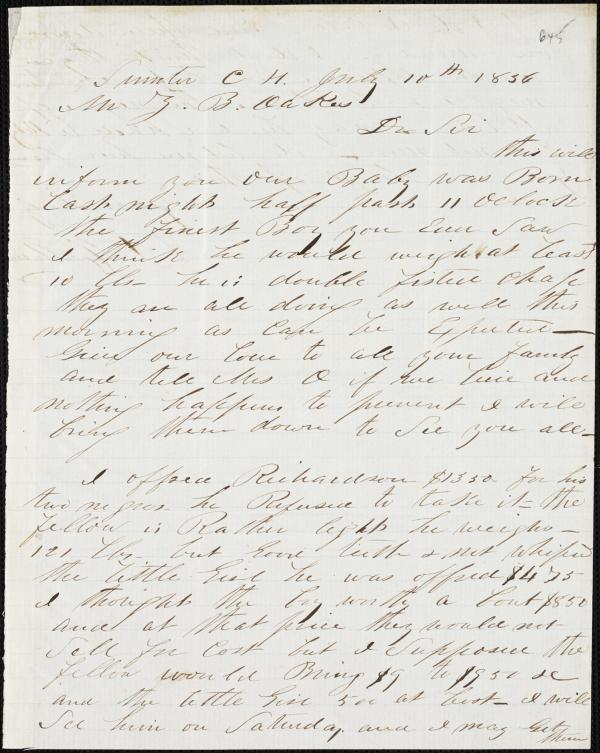 645
Sumter C H. July 10th 1856
Mr Z. B. Oakes
Dr Sir
This will
inform you our Baby was Born
last night half past 11 Oclock
the finest Boy you Ever Saw
I think he would weigh at least
10 lbs he is double fisted Chap
they are all doing as well this
morning as can be Expected—
Give our love to all your family
and tell Mrs O if we live and
nothing happens to prevent I will
bring them down to See you all—
I offred Richardson $1350 for his
two negros he Refused to take it— the
fellow is Rather light he weighs—
121 lbs— but Good teeth & not whiped
the little Girl he was offred $475
I thought the boy worth a bout $850
and at that price they would not
Sell for Cost but I Supposed the
fellow would Bring $9 to $950 &c
and the little Girl 500 at best— I will
See him on Saturday and I may Get
them